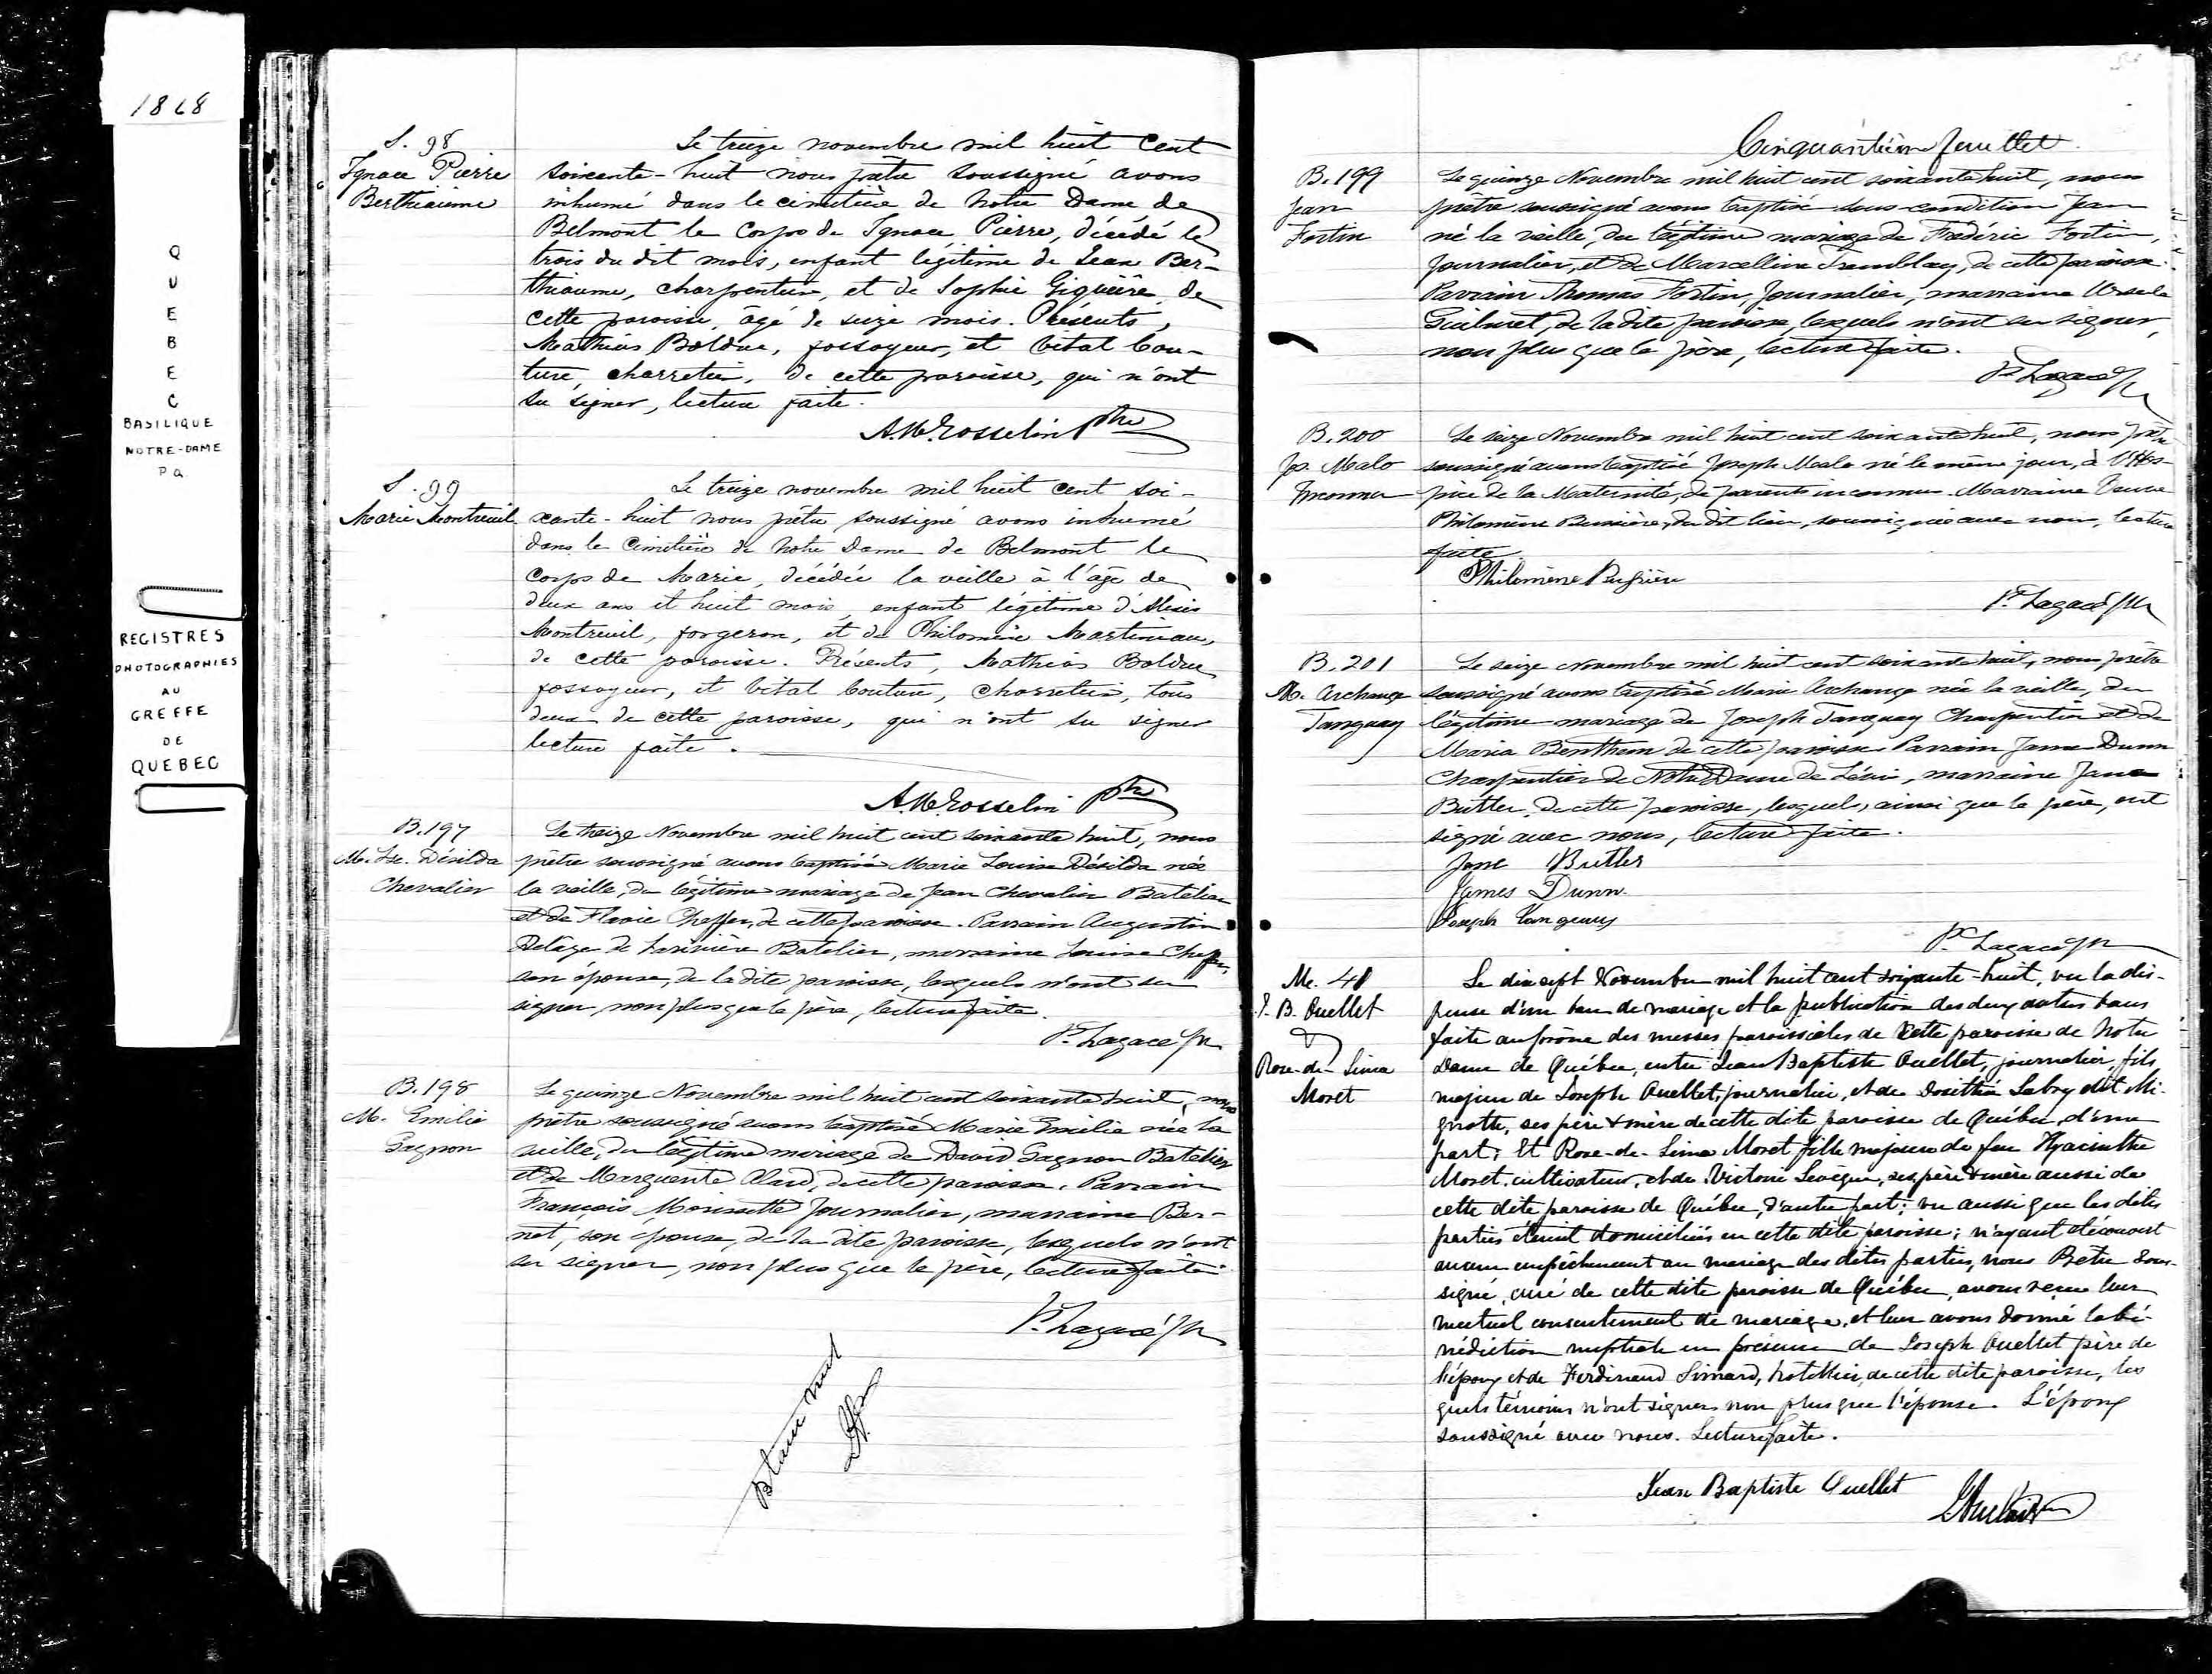 1868
QUEBEC
BASILIQUE
NOTRE-DAME
P.Q.
REGISTRES
PHOTOGRAPHIES
AU
GREFFE
DE
QUEBEC
S. 98
Ignace Pierre
Berthiaume
Le treize novembre mil huit cent
soixante-huit nous prêtre soussigné avons
inhumé dans le cimetière de Notre Dame de
Belmont le corps de Ignace Pierre, décédé le
trois du dit mois, enfant légitime de Jean Ber-
thiaume, charpentier, et de Sophie Giguère, de
cette paroisse, âgé de seize mois. Présents,
Mathias Bolduc, fossoyeur, et Vital Cou-
ture, charretier, de cette paroisse, qui n'ont
su signer, lecture faite.
A. M. Gosselin Ptre
S. 99
Marie Montreuil
Le treize novembre mil huit cent soi-
xante-huit nous prêtre soussigné avons inhumé
dans le cimetière de Notre Dame de Belmont le
corps de Marie, décédée la veille à l'âge de
deux ans et huit mois, enfant légitime d'Alexis
Montreuil, forgeron, et de Philomène Martineau,
de cette paroisse. Présents, Mathias Bolduc
fossoyeur, et Vital Couture, charretier, tous
deux de cette paroisse, qui n'ont su signer
lecture faite.
A. M. Gosselin Ptre
B. 197
M. Lse. Désilda
Chevalier
Le treize Novembre mil huit cent soixante huit, nous
prêtre soussigné avons baptisé Marie Louise Désilda née
la veille, du légitime mariage de Jean Chevalier Batelier
et de Flavie Cheffer, de cette paroisse. Parrain Augustin
Delâge de Lavinière Batelier, marraine Louise Cheffer,
son épouse, de la dite paroisse, lesquels n'ont su
signer, non plus que le père, lecture faite.
P. Lagacé Ptr
B. 198
M. Emilie
Gagnon
Le quinze Novembre mil huit cent soixante huit, nous
prêtre soussigné avons baptisé Marie Emilie née la
veille, du légitime mariage de David Gagnon Batelier
et de Marguerite Clard, de cette paroisse. Parrain
François Morissette Journalier, marraine Ber-
net, son épouse, de la dite paroisse, lesquels n'ont
su signer, non plus que le père, lecture faite.
P. Lagacé Ptr
Blanc nul
Cinquantième feuillet.
B. 199
Jean
Fortin
Le quinze Novembre mil huit cent soixante huit, nous
prêtre soussigné avons baptisé sous condition Jean
né la veille, du légitime mariage de Frédéric Fortin,
Journalier, et de Marcelline Tremblay, de cette paroisse.
Parrain Thomas Fortin, Journalier, marraine Ursule
de la dite paroisse, lesquels n'ont su signer,
non plus que le père, lecture faite.
P. Lagacé Ptr
B. 200
Jos. Malo
Inconnu
Le seize Novembre mil huit cent soixante huit, nous prêtre
soussigné avons baptisé Joseph Malo né le même jour, à l'Hos-
pice de la Maternité, de parents inconnus. Marraine Veuve
Philomène Bussière, du dit lieu, soussignée avec nous, lecture
faite.
Philomène Bussière
P. Lagacé Ptr
B. 201
M. Archange
Tanguay
Le seize Novembre mil huit cent soixante huit, nous prêtre
soussigné avons baptisé Marie Archange née la veille, du
légitime mariage de Joseph Tanguay Charpentier et de
Maria Benthem de cette paroisse. Parrain James Dunn
Charpentier de Notre Dame de Lévi, marraine Jane
Butler, de cette paroisse, lesquels, ainsi que le père, ont
signé avec nous, lecture faite.
Jane Butler
James Dunn
Joseph Tanguay
P. Lagacé Ptr
M. 48
J. B. Ouellet
&
Rose-de-Lima
Moret
Le dix sept Novembre mil huit cent soixante-huit, vu la dis-
pense d'un ban de mariage et la publication des deux autres bans
faite au prône des messes paroissiales de cette paroisse de Notre
Dame de Québec, entre Jean Baptiste Ouellet, journalier, fils
majeur de Joseph Ouellet, journalier, et de Dosithée Labry dit Mi-
gnotte, ses père & mère de cette dite paroisse de Québec, d'une
part; Et Rose-de-Lima Moret fille majeure de feu Hyacinthe
Moret, cultivateur, et de Victoire Levêque, ses père & mère aussi de
cette dite paroisse de Québec, d'autre part; vu aussi que les dites
parties étaient domiciliées en cette dite paroisse; n'ayant découvert
aucun empêchement au mariage des dites parties, nous Prêtre sous-
signé, curé de cette dite paroisse de Québec, avons reçu leur
mutuel consentement de mariage, et leur avons donné la bé-
nédiction nuptiale en présence de Joseph Ouellet père de
l'époux et de Ferdinand Simard, hotellier, de cette dite paroisse, les
quels témoins n'ont signer non plus que l'épouse. L'époux
soussigné avec nous. Lecture faite.
Jean Baptiste Ouellet